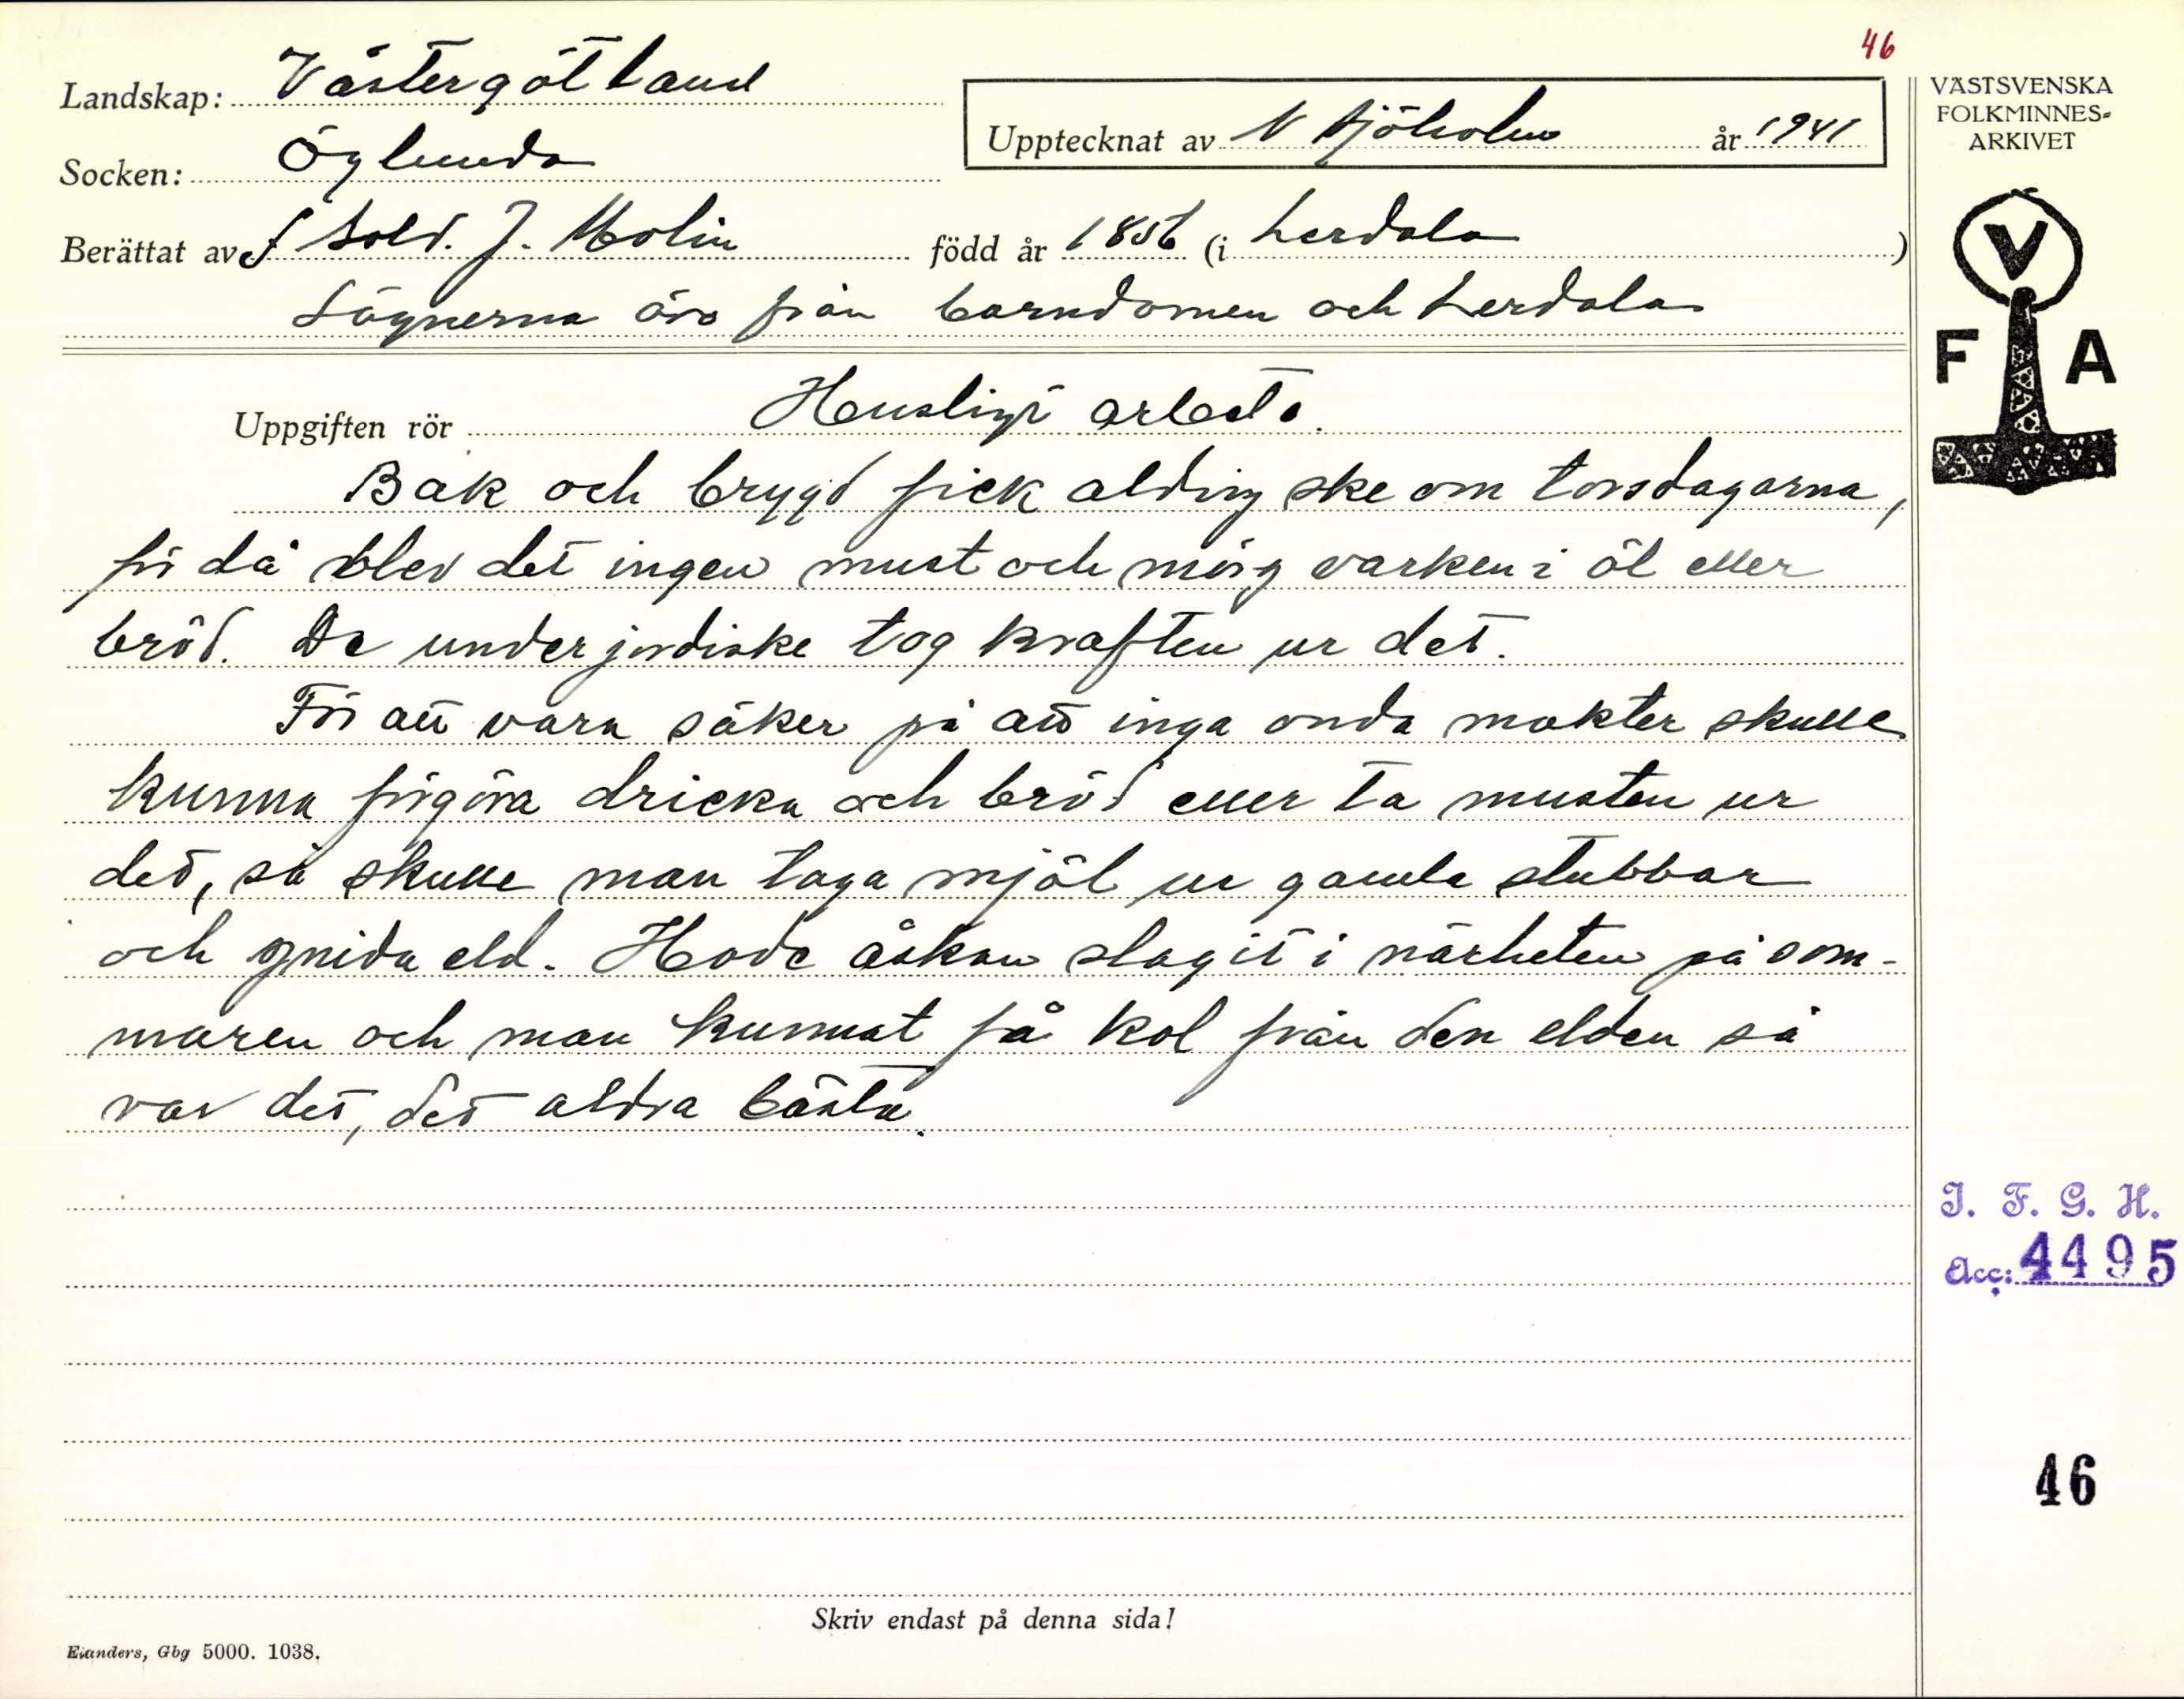 46
Landskap: Västergötland
Socken: Öglunda
Upptecknat av N Sjöholm år 1941
Berättat av f Sold. J. Molin född år 1856 (i Lerdala)
Sägnerna äro från barndomen och Lerdala
Uppgiften rör Husligt arbete.
Bak och brygd fick aldrig ske om torsdagarna,
för då blev det ingen must och märg varken i öl eller
bröd. De underjordiske tog kraften ur det.
För att vara säker på att inga onda makter skulle
kunna förgöra dricka och bröd eller ta musten ur
det, så skulle man taga mjöl ur gamla stubbar
och gnida eld. Hade åskan slagit i närheten på som-
maren och man kunnat få kol från den elden så
var det, det aldra bästa.
Skriv endast på denna sida!
Elanders, Gbg 5000. 1038.
VÄSTSVENSKA
FOLKMINNES-
ARKIVET
V
F A
I. F. G. H.
Acc: 4495
46